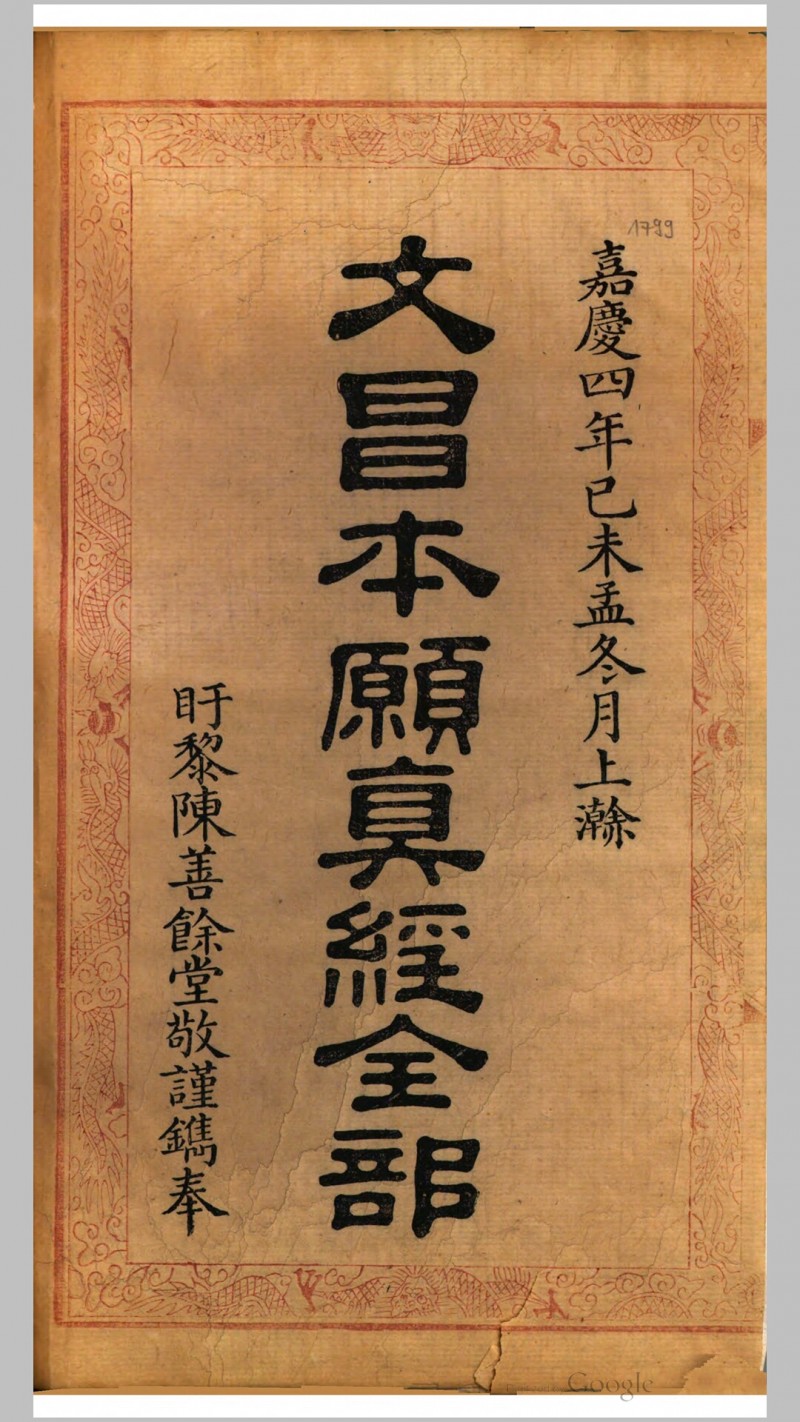 1799
嘉慶四年已未孟冬月上澣
文昌本願真經全部
盱黎陳善餘堂敬謹鐫奉
Google